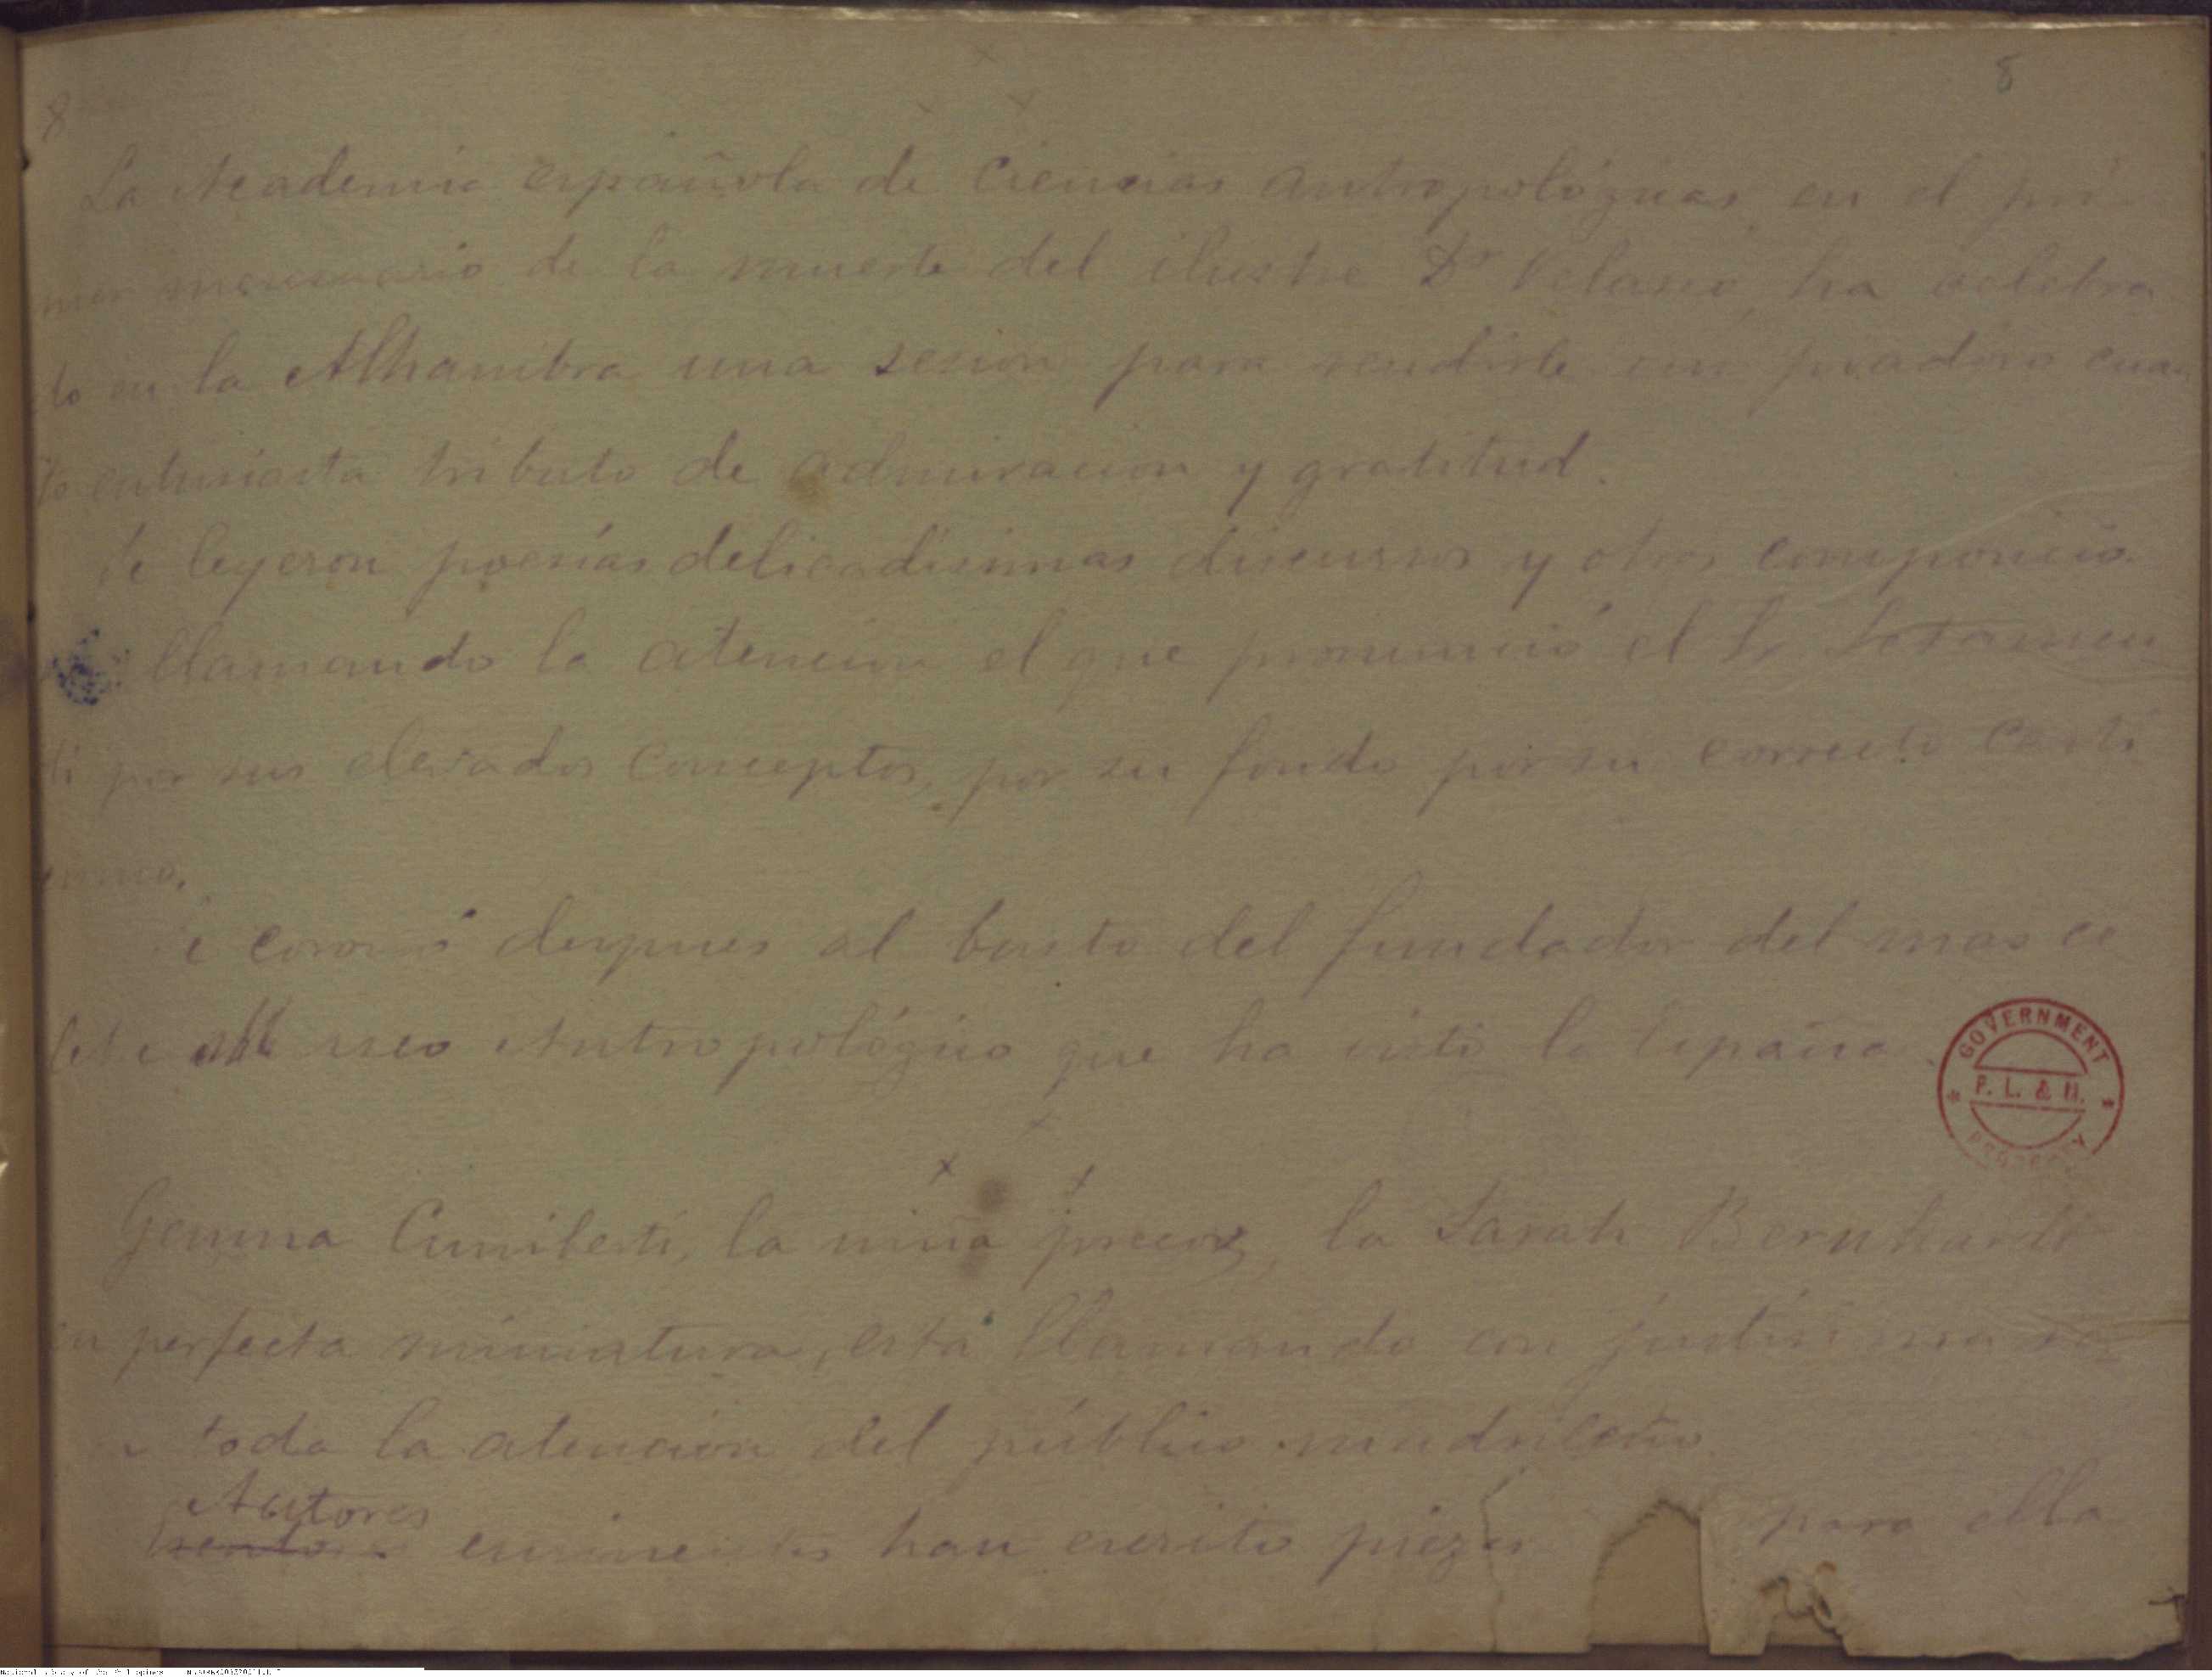 8
8
La Academia española de Ciencias Antropológicas, en el pri
mer de la muerte del ilustre Dr Velasco, ha celebra
do en la Alhambra una sesion para rendirle un cuan
to entusiasta tributo de admiracion y gratitud.
Se leyeron poesías delicadísimas discursos y otras composicio
llamando la atencion el que pronunció el Sr
por sus elevados conceptos, por su fondo por su correcto casti
cismo.
Se coronó despues al busto del fundador del mas ce
lebre museo Antropológico que ha visto la España.
GOVERNMENT
P. L. & M.
PROPERTY
Gemma Cuniberti, la niña precoz, la Sarah Bernhardt
en perfecta miniatura, está llamando con justísima ra
toda la atencion del público madrileño
Autores
eminentes han escrito piezas para ella
National Library of the Philippines